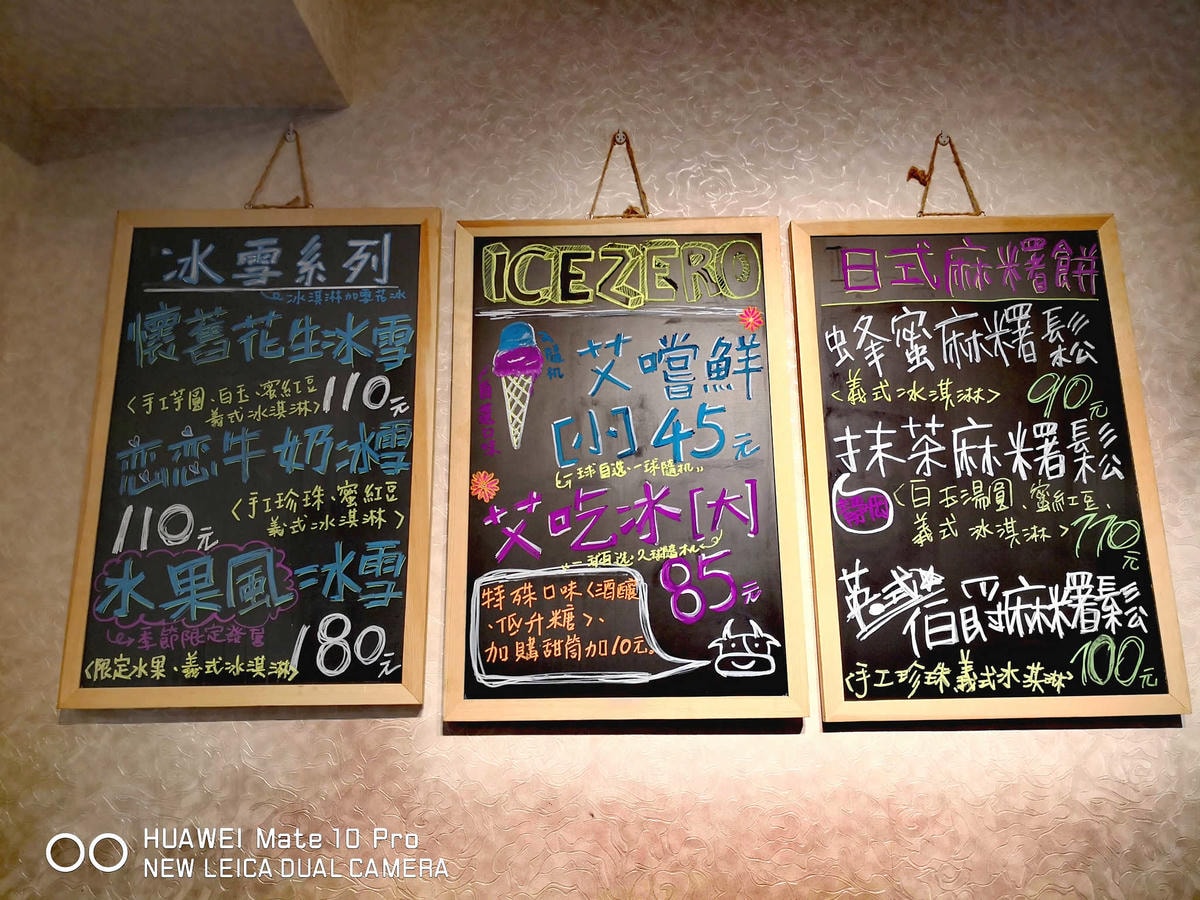 冰雪系列
冰淇淋加雪花冰
懷舊花生冰雪
<手工芋圓、白玉、蜜紅豆
義式冰淇淋>
110元
戀戀牛奶冰雪
<手工珍珠、蜜紅豆
義式冰淇淋>
110元
水果風冰雪
季節限定
<限定水果、義式冰淇淋>
180元
ICEZERO
艾嚐鮮
[小] 45元
一球自选、一球隨机
艾吃冰[大]
85元
特殊口味<酒釀
、低升糖>、
加購甜筒加10元。
日式麻糬餅
蜂蜜麻糬鬆
<義式冰淇淋>
90元
抹茶麻糬鬆
<白玉湯圓、蜜紅豆、
義式冰淇淋>
110元
英式伯爵麻糬鬆
<手工珍珠義式冰淇淋>
100元
HUAWEI Mate 10 Pro
NEW LEICA DUAL CAMERA